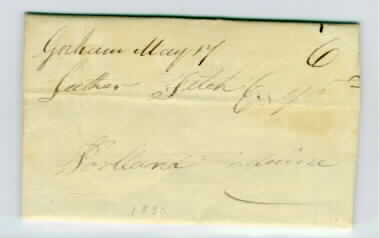 Gorham May 17 6
Luther Fitch Esqr
Portland Maine
1830